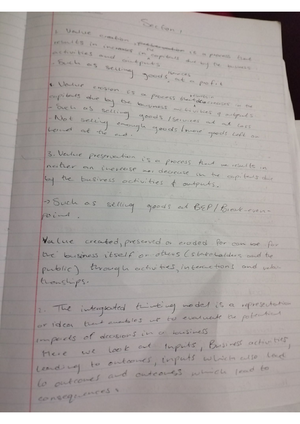 Section 1
1. Value creation, is a process that
results in increase in capitals due by the business
activities and outputs
- Such as selling goods, at a profit
2. Value erosion is a process decrease in the
capitals due by the business activities & outputs
- Such as selling goods/services at a loss
- Not selling enough goods/more goods left on
hand at the end.
3. Value preservation is a process that results in
neither an increase nor decrease in the capitals due
by the business activities & outputs.
→ Such as selling goods at BEP/Break-even
point.
Value created, preserved or eroded for can be for
the business itself or others (stakeholders and the
public) through activities, interactions and relationships.
1. The integrated thinking model is a representation
or idea that enables us to evaluate the potential
impacts of decisions in a business
Here we look at Inputs, Business activities,
leading to outcomes, Inputs which also lead
to outcomes and outcomes which lead to
consequences.